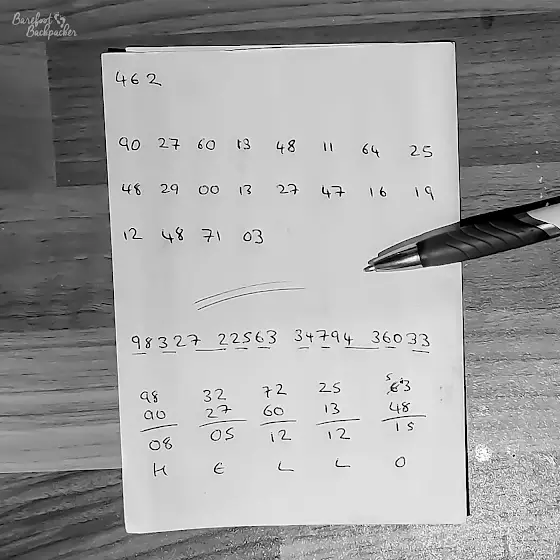 Barefoot
Backpacker
462
90 27 60 13 48 11 64 25
48 29 00 13 27 47 16 19
12 48 71 03
98327 22563 34794 36033
98 32 72 25 5 13
90 27 60 13 48
08 05 12 12 15
H E L L O